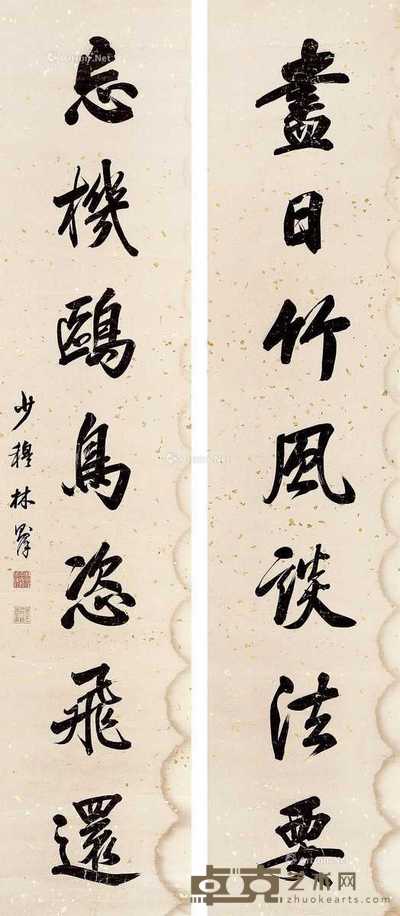 盡日竹風談法要
忘機鷗鳥恣飛還
少穆林則徐
卓克艺术网
zhuokearts.com